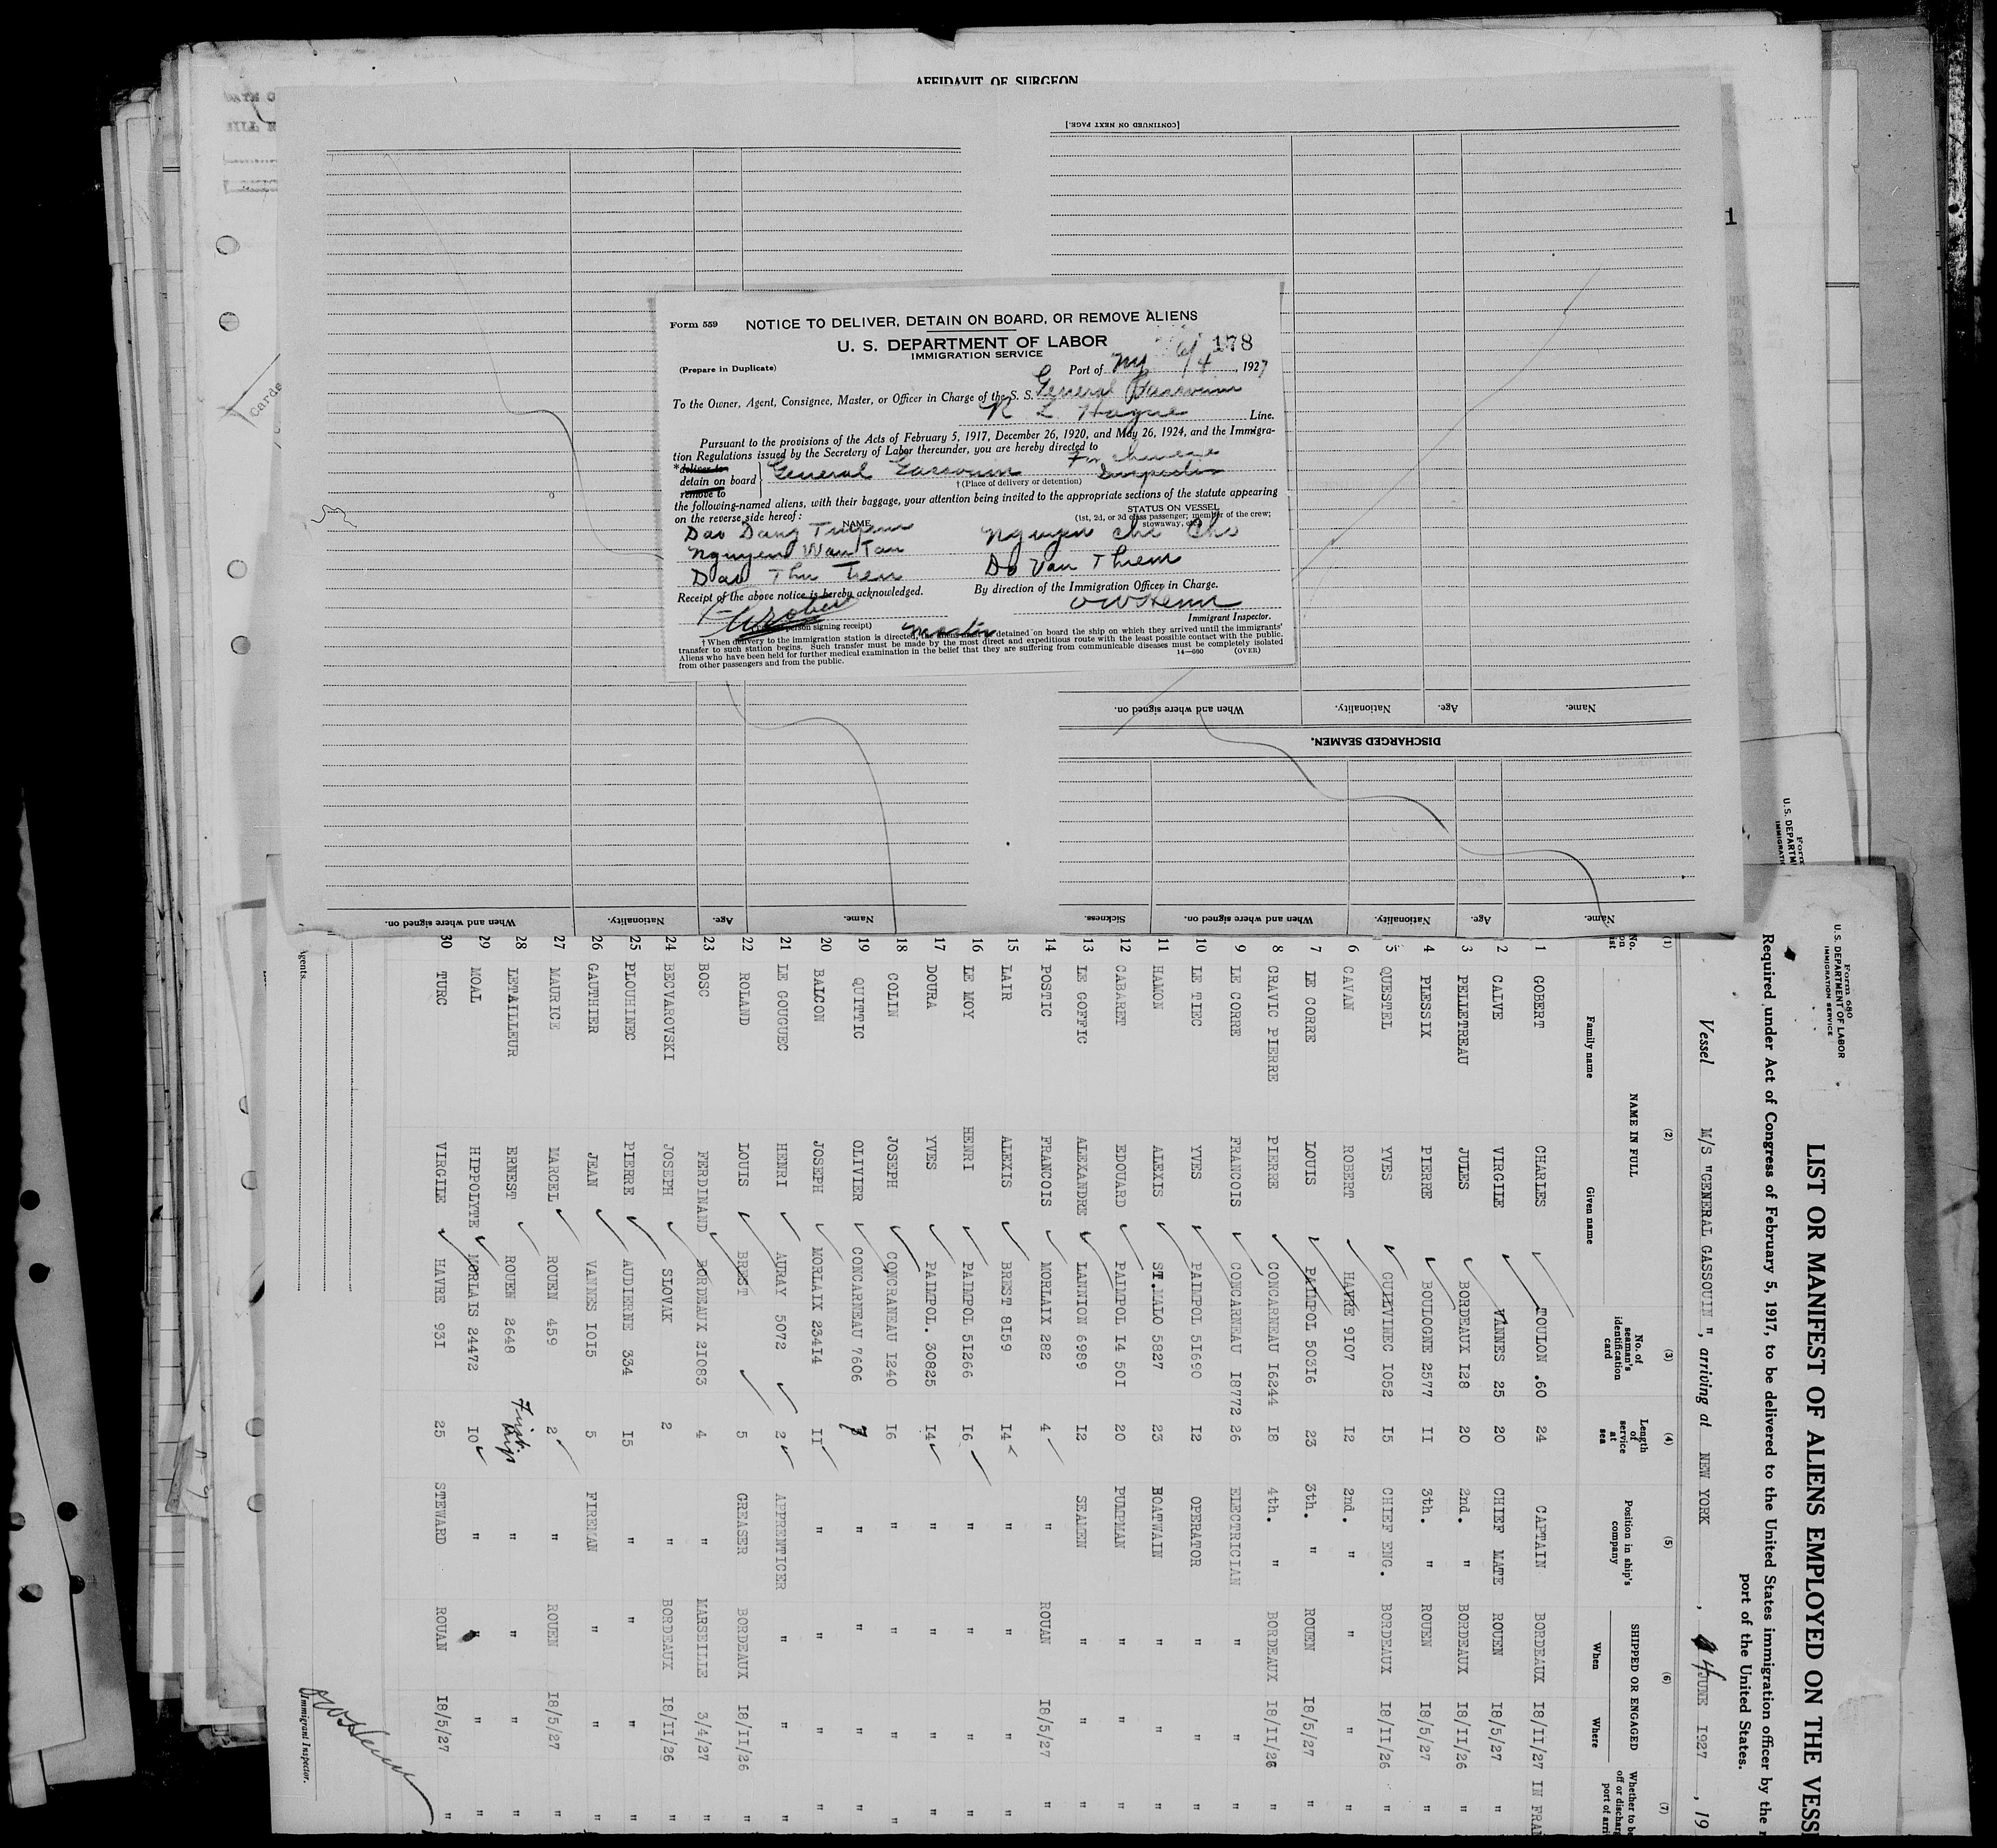 AFFIDAVIT OF SURGEON
[CONTINUED ON NEXT PAGE.]
1
Form 559 NOTICE TO DELIVER, DETAIN ON BOARD, OR REMOVE ALIENS
U. S. DEPARTMENT OF LABOR
IMMIGRATION SERVICE
178
(Prepare in Duplicate)
Port of NY 6/4, 1927
To the Owner, Agent, Consignee, Master, or Officer in Charge of the S. S. General Gassouin
R L Hague Line.
Pursuant to the provisions of the Acts of February 5, 1917, December 26, 1920, and May 26, 1924, and the Immigra-
tion Regulations issued by the Secretary of Labor thereunder, you are hereby directed to
*deliver to
detain on board General Gassouin For chinese Inspection
remove to
†(Place of delivery or detention)
the following-named aliens, with their baggage, your attention being invited to the appropriate sections of the statute appearing
on the reverse side hereof:
NAME
STATUS ON VESSEL
(1st, 2d, or 3d class passenger; member of the crew;
stowaway, etc.)
Dao Dang Nguyen Che Cho
Nguyen Wan Tan Do Van Thiem
Dao Thu Tien
Receipt of the above notice is hereby acknowledged. By direction of the Immigration Officer in Charge.
master
person signing receipt) Immigrant Inspector.
†When delivery to the immigration station is directed, detained on board the ship on which they arrived until the immigrants'
transfer to such station begins. Such transfer must be made by the most direct and expeditious route with the least possible contact with the public.
Aliens who have been held for further medical examination in the belief that they are suffering from communicable diseases must be completely isolated
from other passengers and from the public. 14—660 (OVER)
When and where signed on. Nationality. Age. Name.
DISCHARGED SEAMEN.
When and where signed on. Nationality. Age. Name. Sickness. When and where signed on. Nationality. Age. Name.
Form 680
U. S. DEPARTMENT OF LABOR
IMMIGRATION SERVICE
LIST OR MANIFEST OF ALIENS EMPLOYED ON THE VESS
Required under Act of Congress of February 5, 1917, to be delivered to the United States immigration officer by the
port of the United States.
Vessel M/S "GENERAL GASSOUIN", arriving at NEW YORK, 4 JUNE 1927, 19
(1) (2) (3) (4) (5) (6) (7)
No. on list
NAME IN FULL
Family name Given name
No. of seaman's identification card
Length of service at sea
Position in ship's company
SHIPPED OR ENGAGED
When Where
Whether to be
off or discharg
port of arri
1 GOBERT CHARLES TOULON .60 24 CAPTAIN BORDEAUX I8/II/27 IN FRAN
2 CALVE VIRGILE VANNES 25 20 CHIEF MATE ROUEN I8/5/27 "
3 PELLETREAU JULES BORDEAUX I28 20 2nd. " BORDEAUX I8/II/26 "
4 PLESSIX PIERRE BOULOGNE 2577 II 3th. " ROUEN I8/5/27 "
5 QUESTEL YVES GUILVINEC I052 I5 CHIEF ENG. BORDEAUX I8/II/26 "
6 CAVAN ROBERT HAVRE 9I07 I2 2nd. " " " "
7 LE CORRE LOUIS PAIMPOL 503I6 23 3th. " ROUEN I8/5/27 "
8 CRAVIC PIERRE PIERRE CONCARNEAU I6244 I8 4th. " BORDEAUX I8/II/26 "
9 LE CORRE FRANCOIS CONCARNEAU I8772 26 ELECTRICIAN " " "
10 LE TIEC YVES PAIMPOL 5I690 I2 OPERATOR " " "
11 HAMON ALEXIS ST.MALO 5827 23 BOATWAIN " " "
12 CABARET EDOUARD PAIMPOL I4 50I 20 PUMPMAN " " "
13 LE GOFFIC ALEXANDRE LANNION 6989 I2 SEAMEN " " "
14 POSTIC FRANCOIS MORLAIX 282 4 " ROUAN I8/5/27 "
15 LAIR ALEXIS BREST 8I59 I4 " " " "
16 LE MOY HENRI PAIMPOL 5I266 I6 " " " "
17 DOURA YVES PAIMPOL. 30825 I4 " " " "
18 COLIN JOSEPH CONCRANEAU I240 I6 " " " "
19 QUITTIC OLIVIER CONCARNEAU 7606 7 " " " "
20 BALCON JOSEPH MORLAIX 234I4 II " " " "
21 LE GOUGUEC HENRI AURAY 5072 2 APPRENTICER " " "
22 ROLAND LOUIS BREST 5 GREASER BORDEAUX I8/II/26 "
23 BOSC FERDINAND BORDEAUX 2I083 4 " MARSEILLE 3/4/27 "
24 BECVAROVSKI JOSEPH SLOVAK 2 " BORDEAUX I8/II/26 "
25 PLOUHINEC PIERRE AUDIERNE 334 I5 " " " "
26 GAUTHIER JEAN VANNES I0I5 5 FIREMAN " " "
27 MAURICE MARCEL ROUEN 459 2 " ROUEN I8/5/27 "
28 LETAILLEUR ERNEST ROUEN 2648 First trip " " " "
29 MOAL HIPPOLYTE MORLAIS 24472 I0 " " " "
30 TURC VIRGILE HAVRE 93I 25 STEWARD ROUAN I8/5/27 "
Agents.
Immigrant Inspector.